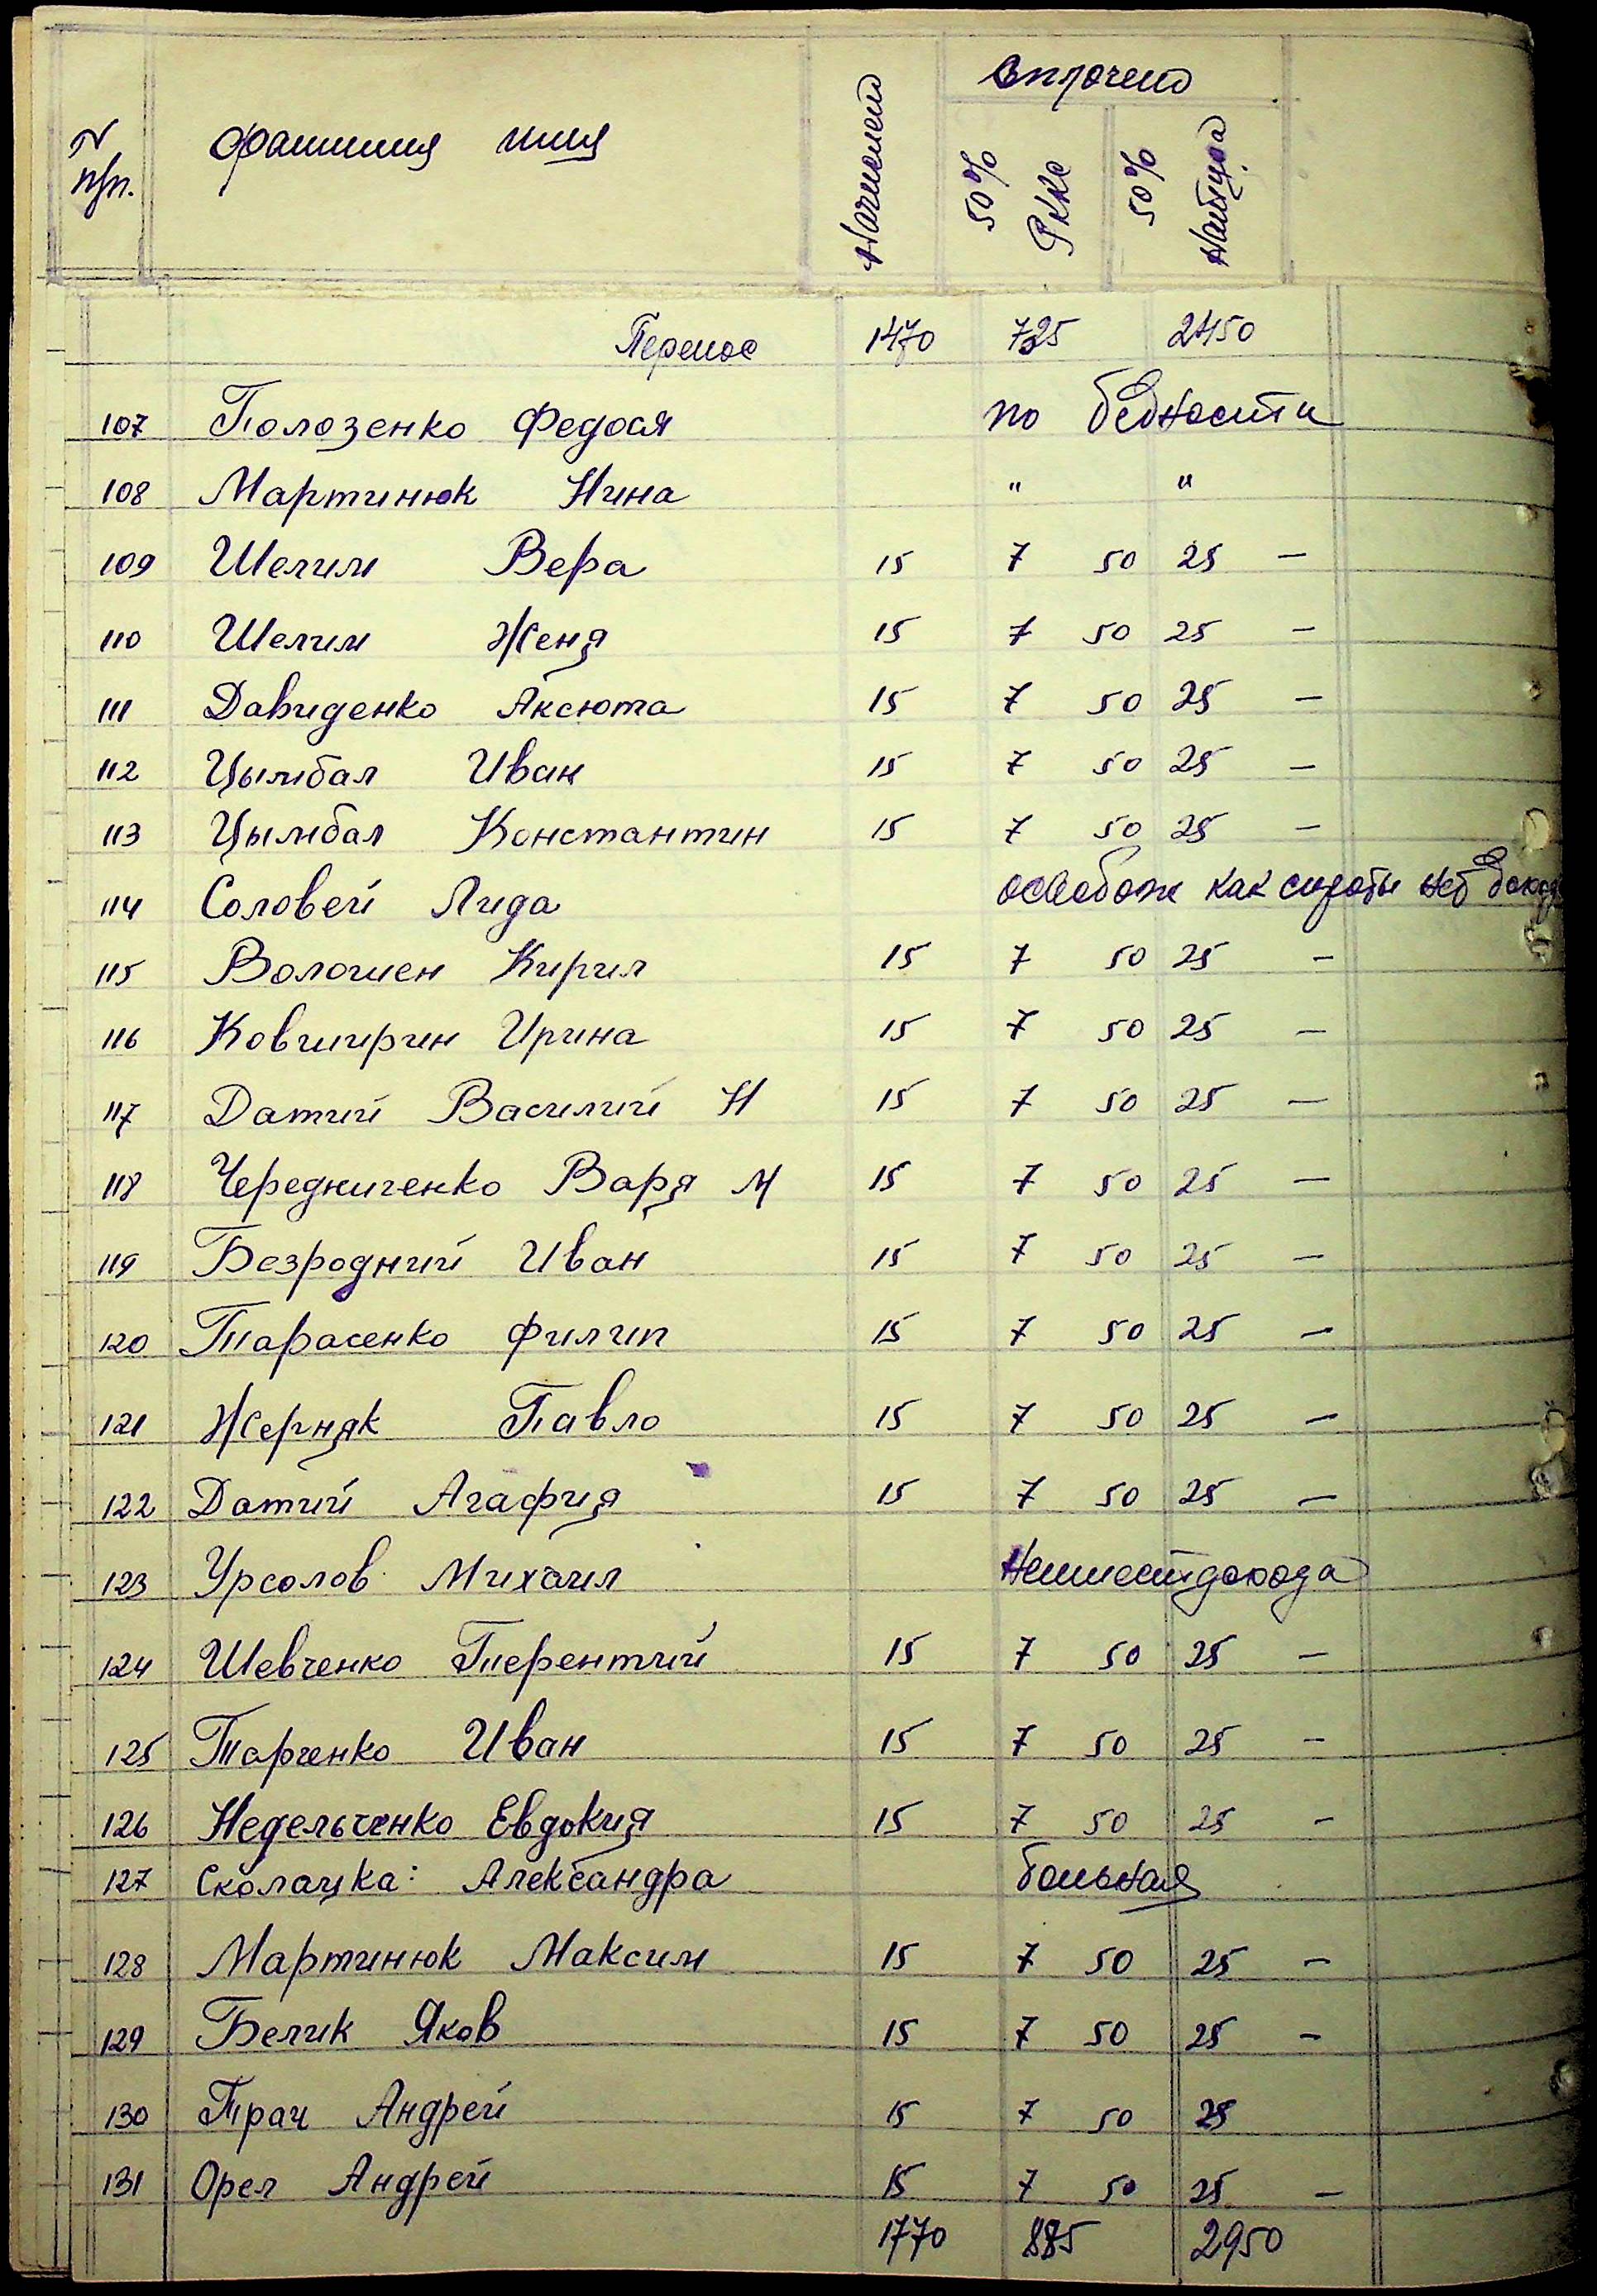 N п/п. фамилия имя Начислен Оплочено
50% РККС 50% Нацбуда
Перенос 1470 735 2450
107 Полозенко Федося по бедности
108 Мартинюк Нина " "
109 Шелим Вера 15 7 50 25 —
110 Шелим Женя 15 7 50 25 —
111 Давиденко Аксюта 15 7 50 25 —
112 Цымбал Иван 15 7 50 25 —
113 Цымбал Константин 15 7 50 25 —
114 Соловей Лида освобож как сироты нет доход
115 Волошен Кирил 15 7 50 25 —
116 Ковширин Ирина 15 7 50 25 —
117 Датий Василий Н 15 7 50 25 —
118 Чередниченко Варя М 15 7 50 25 —
119 Безродний Иван 15 7 50 25 —
120 Тарасенко Филип 15 7 50 25 —
121 Жерняк Павло 15 7 50 25 —
122 Датий Агафия 15 7 50 25 —
123 Урсолов Михаил Неимеет дохода
124 Шевченко Терентий 15 7 50 25 —
125 Тарченко Иван 15 7 50 25 —
126 Недельченко Евдокия 15 7 50 25 —
127 Сколацка: Александра больная
128 Мартинюк Максим 15 7 50 25 —
129 Белик Яков 15 7 50 25 —
130 Трач Андрей 15 7 50 25
131 Орел Андрей 15 7 50 25 —
1770 885 2950